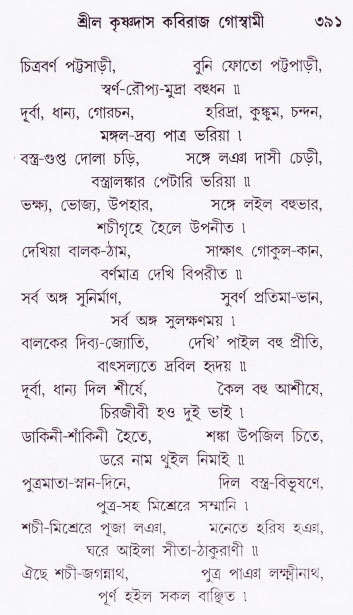 শ্রীল কৃষ্ণদাস কবিরাজ গোস্বামী ৩৯১
চিত্রবর্ণ পট্টসাড়ী, বুনি ফোতো পট্টপাড়ী,
স্বর্ণ-রৌপ্য-মুদ্রা বহুধন ॥
দূর্বা, ধান্য, গোরচন, হরিদ্রা, কুঙ্কুম, চন্দন,
মঙ্গল-দ্রব্য পাত্র ভরিয়া ।
বস্ত্র-গুপ্ত দোলা চড়ি, সঙ্গে লঞা দাসী চেড়ী,
বস্ত্রালঙ্কার পেটারি ভরিয়া ॥
ভক্ষ্য, ভোজ্য, উপহার, সঙ্গে লইল বহুভার,
শচীগৃহে হৈলে উপনীত ।
দেখিয়া বালক-ঠাম, সাক্ষাৎ গোকুল-কান,
বর্ণমাত্র দেখি বিপরীত ॥
সর্ব অঙ্গ সুনির্মাণ, সুবর্ণ প্রতিমা-ভান,
সর্ব অঙ্গ সুলক্ষণময় ।
বালকের দিব্য-জ্যোতি, দেখি' পাইল বহু প্রীতি,
বাৎসল্যতে দ্রবিল হৃদয় ॥
দূর্বা, ধান্য দিল শীর্ষে, কৈল বহু আশীষে,
চিরজীবী হও দুই ভাই ।
ডাকিনী-শাঁকিনী হৈতে, শঙ্কা উপজিল চিতে,
ডরে নাম থুইল নিমাই ॥
পুত্রমাতা-স্নান-দিনে, দিল বস্ত্র-বিভূষণে,
পুত্র-সহ মিশ্রেরে সম্মানি ।
শচী-মিশ্রেরে পূজা লঞা, মনেতে হরিষ হঞা,
ঘরে আইলা সীতা-ঠাকুরাণী ॥
ঐছে শচী-জগন্নাথ, পুত্র পাঞা লক্ষ্মীনাথ,
পূর্ণ হইল সকল বাঞ্ছিত ।